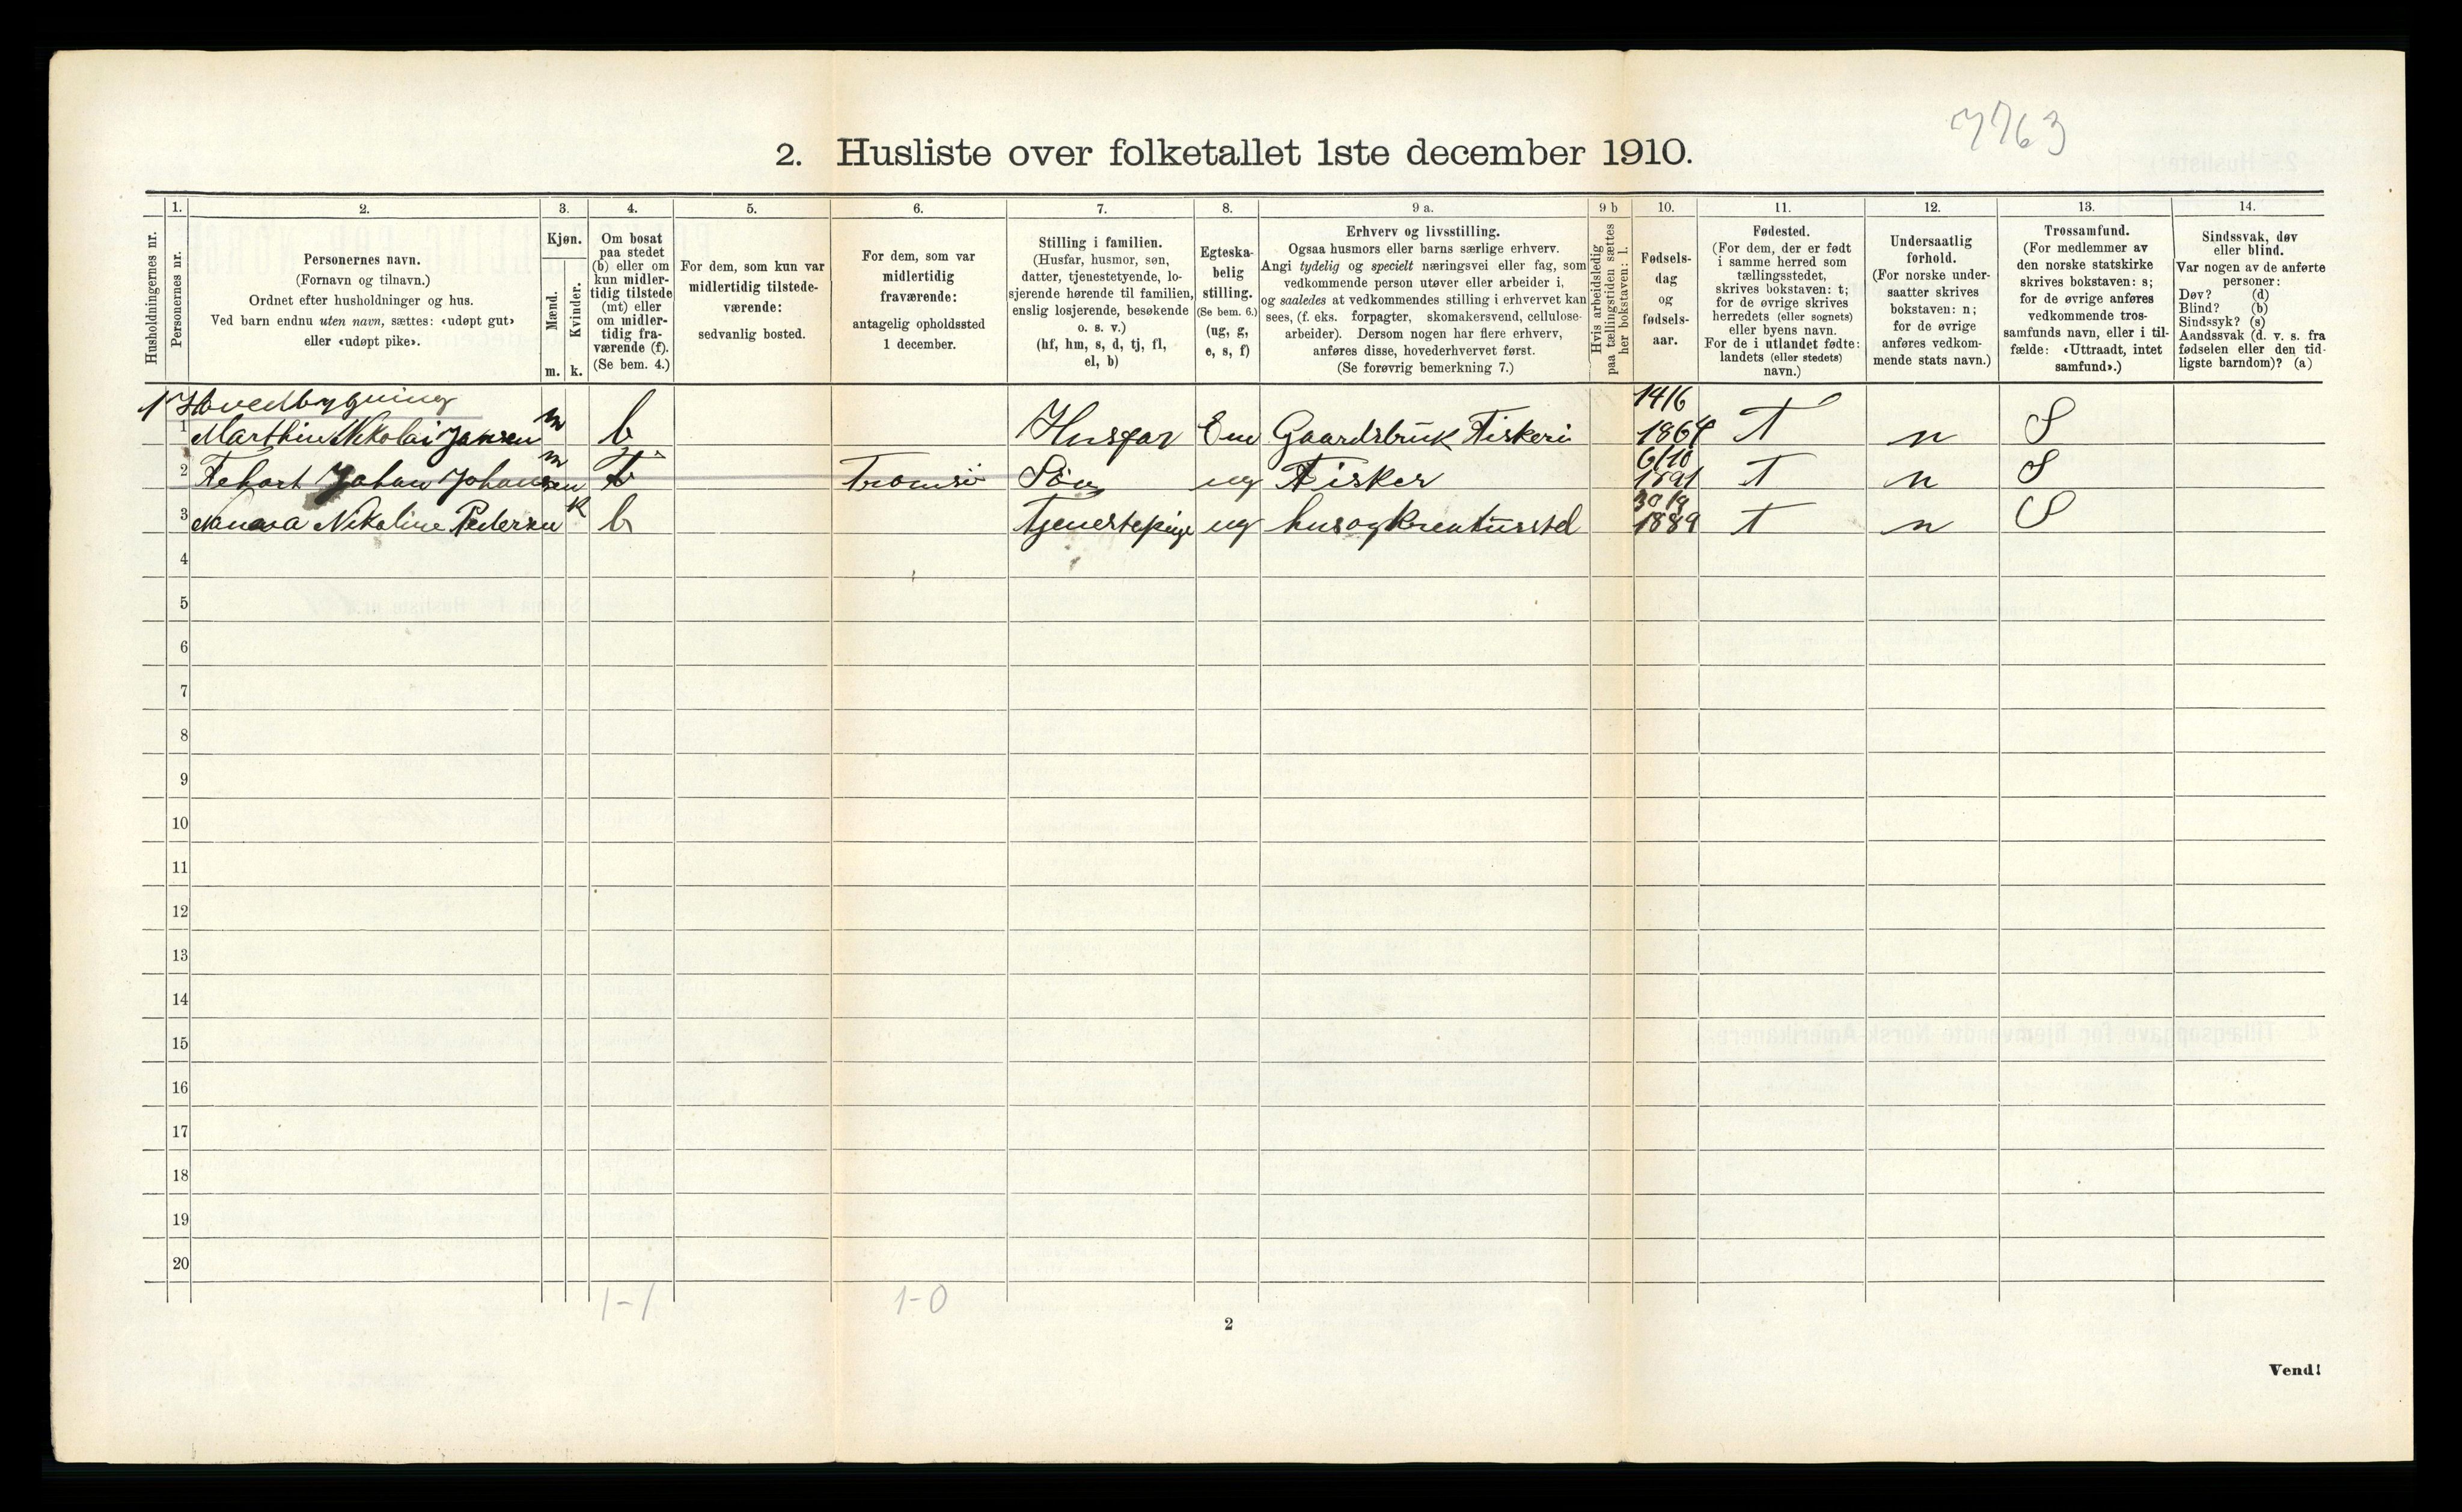 7763
2. Husliste over folketallet 1ste december 1910.
Husholdningernes nr.
1.
Personernes nr.
2.
Personernes navn.
(Fornavn og tilnavn.)
Ordnet efter husholdninger og hus.
Ved barn endnu uten navn, sættes: «udøpt gut»
eller «udøpt pike».
3.
Kjøn.
Mænd.
Kvinder.
m. k.
4.
Om bosat
paa stedet
(b) eller om
kun midler-
tidig tilstede
(mt) eller
om midler-
tidig fra-
værende (f).
(Se bem. 4.)
5.
For dem, som kun var
midlertidig tilstede-
værende:
sedvanlig bosted.
6.
For dem, som var
midlertidig
fraværende:
antagelig opholdssted
1 december.
7.
Stilling i familien.
(Husfar, husmor, søn,
datter, tjenestetyende, lo-
sjerende hørende til familien,
enslig losjerende, besøkende
o. s. v.)
(hf, hm, s, d, tj, fl,
el, b)
8.
Egteska-
belig
stilling.
(Se bem. 6.)
(ug, g,
e, s, f)
9 a.
Erhverv og livsstilling.
Ogsaa husmors eller barns særlige erhverv.
Angi tydelig og specielt næringsvei eller fag, som
vedkommende person utøver eller arbeider i,
og saaledes at vedkommendes stilling i erhvervet kan
sees, (f. eks. forpagter, skomakersvend, cellulose-
arbeider). Dersom nogen har flere erhverv,
anføres disse, hovederhvervet først.
(Se forøvrig bemerkning 7.)
9 b
Hvis arbeidsledig
paa tællingstiden sættes
her bokstaven: l.
10.
Fødsels-
dag
og
fødsels-
aar.
11.
Fødested.
(For dem, der er født
i samme herred som
tællingsstedet,
skrives bokstaven: t;
for de øvrige skrives
herredets (eller sognets)
eller byens navn.
For de i utlandet fødte:
landets (eller stedets)
navn.)
12.
Undersaatlig
forhold.
(For norske under-
saatter skrives
bokstaven: n;
for de øvrige
anføres vedkom-
mende stats navn.)
13.
Trossamfund.
(For medlemmer av
den norske statskirke
skrives bokstaven: s;
for de øvrige anføres
vedkommende tros-
samfunds navn, eller i til-
fælde: «Uttraadt, intet
samfund».)
14.
Sindssvak, døv
eller blind.
Var nogen av de anførte
personer:
Døv? (d)
Blind? (b)
Sindssyk? (s)
Aandssvak (d. v. s. fra
fødselen eller den tid-
ligste barndom)? (a)
1 Hovedbygning
1 Marthin Nikolai Jansen m b Husfar Em Gaardsbruk Fiskeri 14/6 1864 T n S
2 Johan Johansen m Tromsö Sön ug Fisker 6/10 1891 T n S
3 Nikoline Pedersen K b Tjenestepige ug hus og kreaturstel 30/9 1889 t n S
4
5
6
7
8
9
10
11
12
13
14
15
16
17
18
19
20
1-1
1-0
2
Vend!